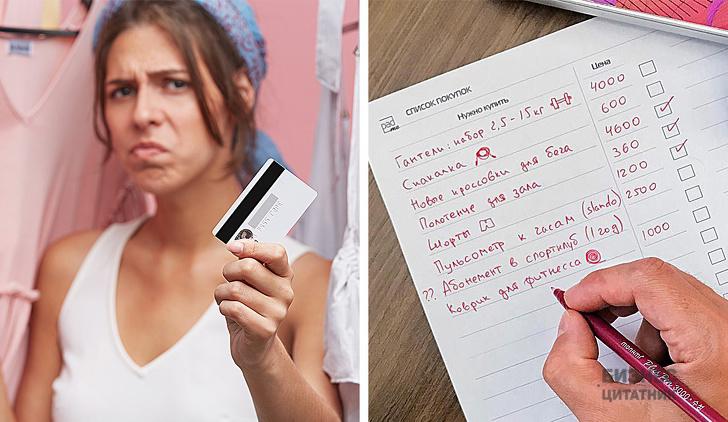 pad
СПИСОК ПОКУПОК
Нужно купить
Цена
Гантели: набор 2,5-15кг
4000
Скакалка
600
Новые кроссовки для бега
4600
Полотенце для зала
360
Шорты
1200
Пульсометр к часам (slando)
2500
?? Абонемент в спортклуб (120g)
Коврик для фитнеса
1000
marvy Plus Pen 3000
ЦИТАТНИК